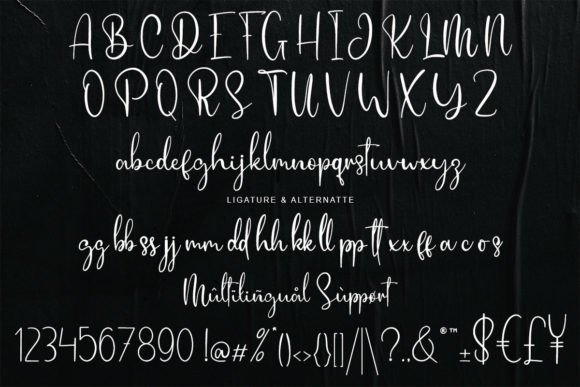 A B C D E F G H I J K L M N
O P Q R S T U V W X Y Z
abcdefghijklmnopqrstuvwxyz
LIGATURE & ALTERNATTE
gg bb ss jj mm dd hh kk ll pp tt xx ff a c o s
Mûltilingüål Sùpport
1234567890 !@#%"()<>{}[]/|\?.,& ®™ ±$€£¥